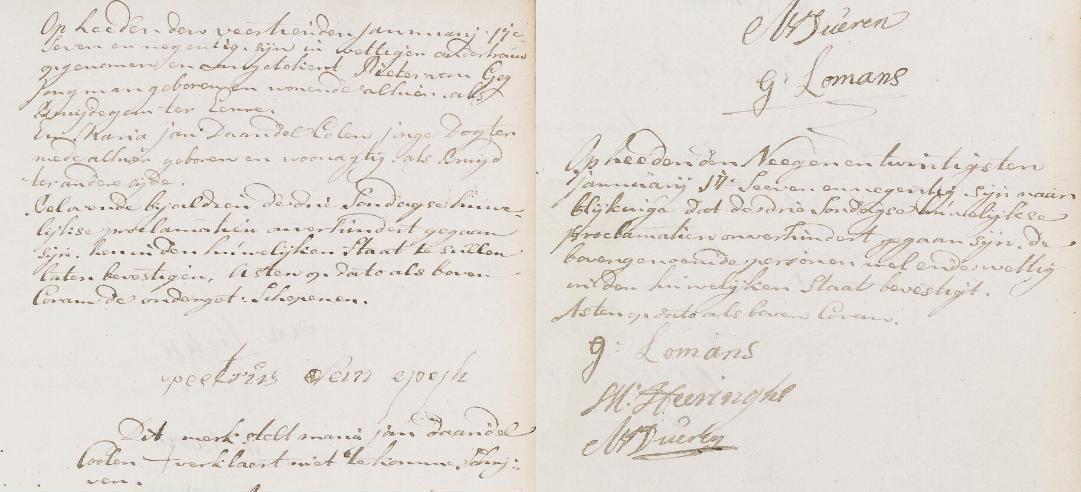 Op heeden den veerthienden Januuarij 17e
seven en negentig sijn in wettigen ondertrouw
opgenomen en aangetekent Pieter van
Jongman geboren en wonende alhier als
Bruijdegom ter eenre.
En Maria Jan Daandel Colen jonge dogter
mede alhier geboren en woonagtig als Bruyd
ter andere zijde.
Belovende bij aldien de drie Sondagse huwe-
lijkse proclamatien onverhindert gegaan
sijn, hun in den huwelijken Staat te sullen
laten bevestigen, Asten op dato als boven
Coram de onderget: Schepenen.
peetrus
Dit merk stelt maria jan daandel
Coolen + verklaert niet te kennen schrij-
ven.
MVDueren
G: Lomans
Op heeden den Neegen en twintigsten
Januuarij 17e seeven en negentig sijn naar
blijkinge dat de drie Sondagse huwelijkse
Proclamatien onverhindert gegaan sijn. de
bovengenoemde personen wel ende wettig
in den huwelijken Staat bevestigt.
Asten op dato als boven Coram.
G: Lomans
MVDueren